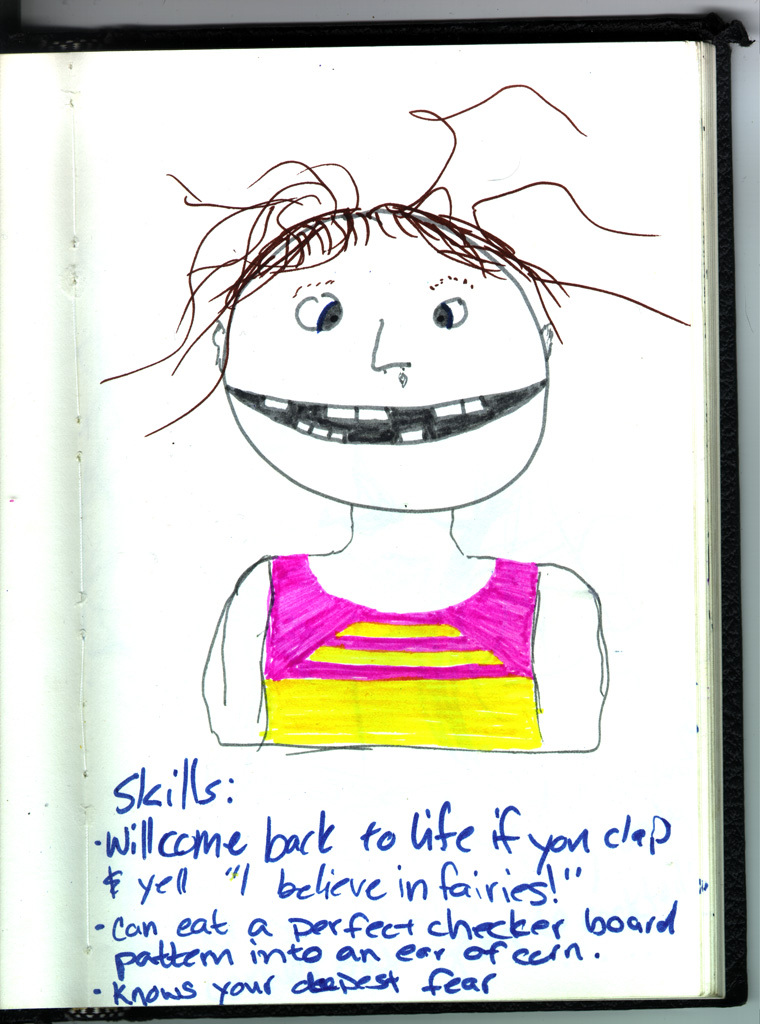 Skills:
• Will come back to life if you clap
& yell "I believe in fairies!"
• Can eat a perfect checker board
pattern into an ear of corn.
• Knows your deepest fear